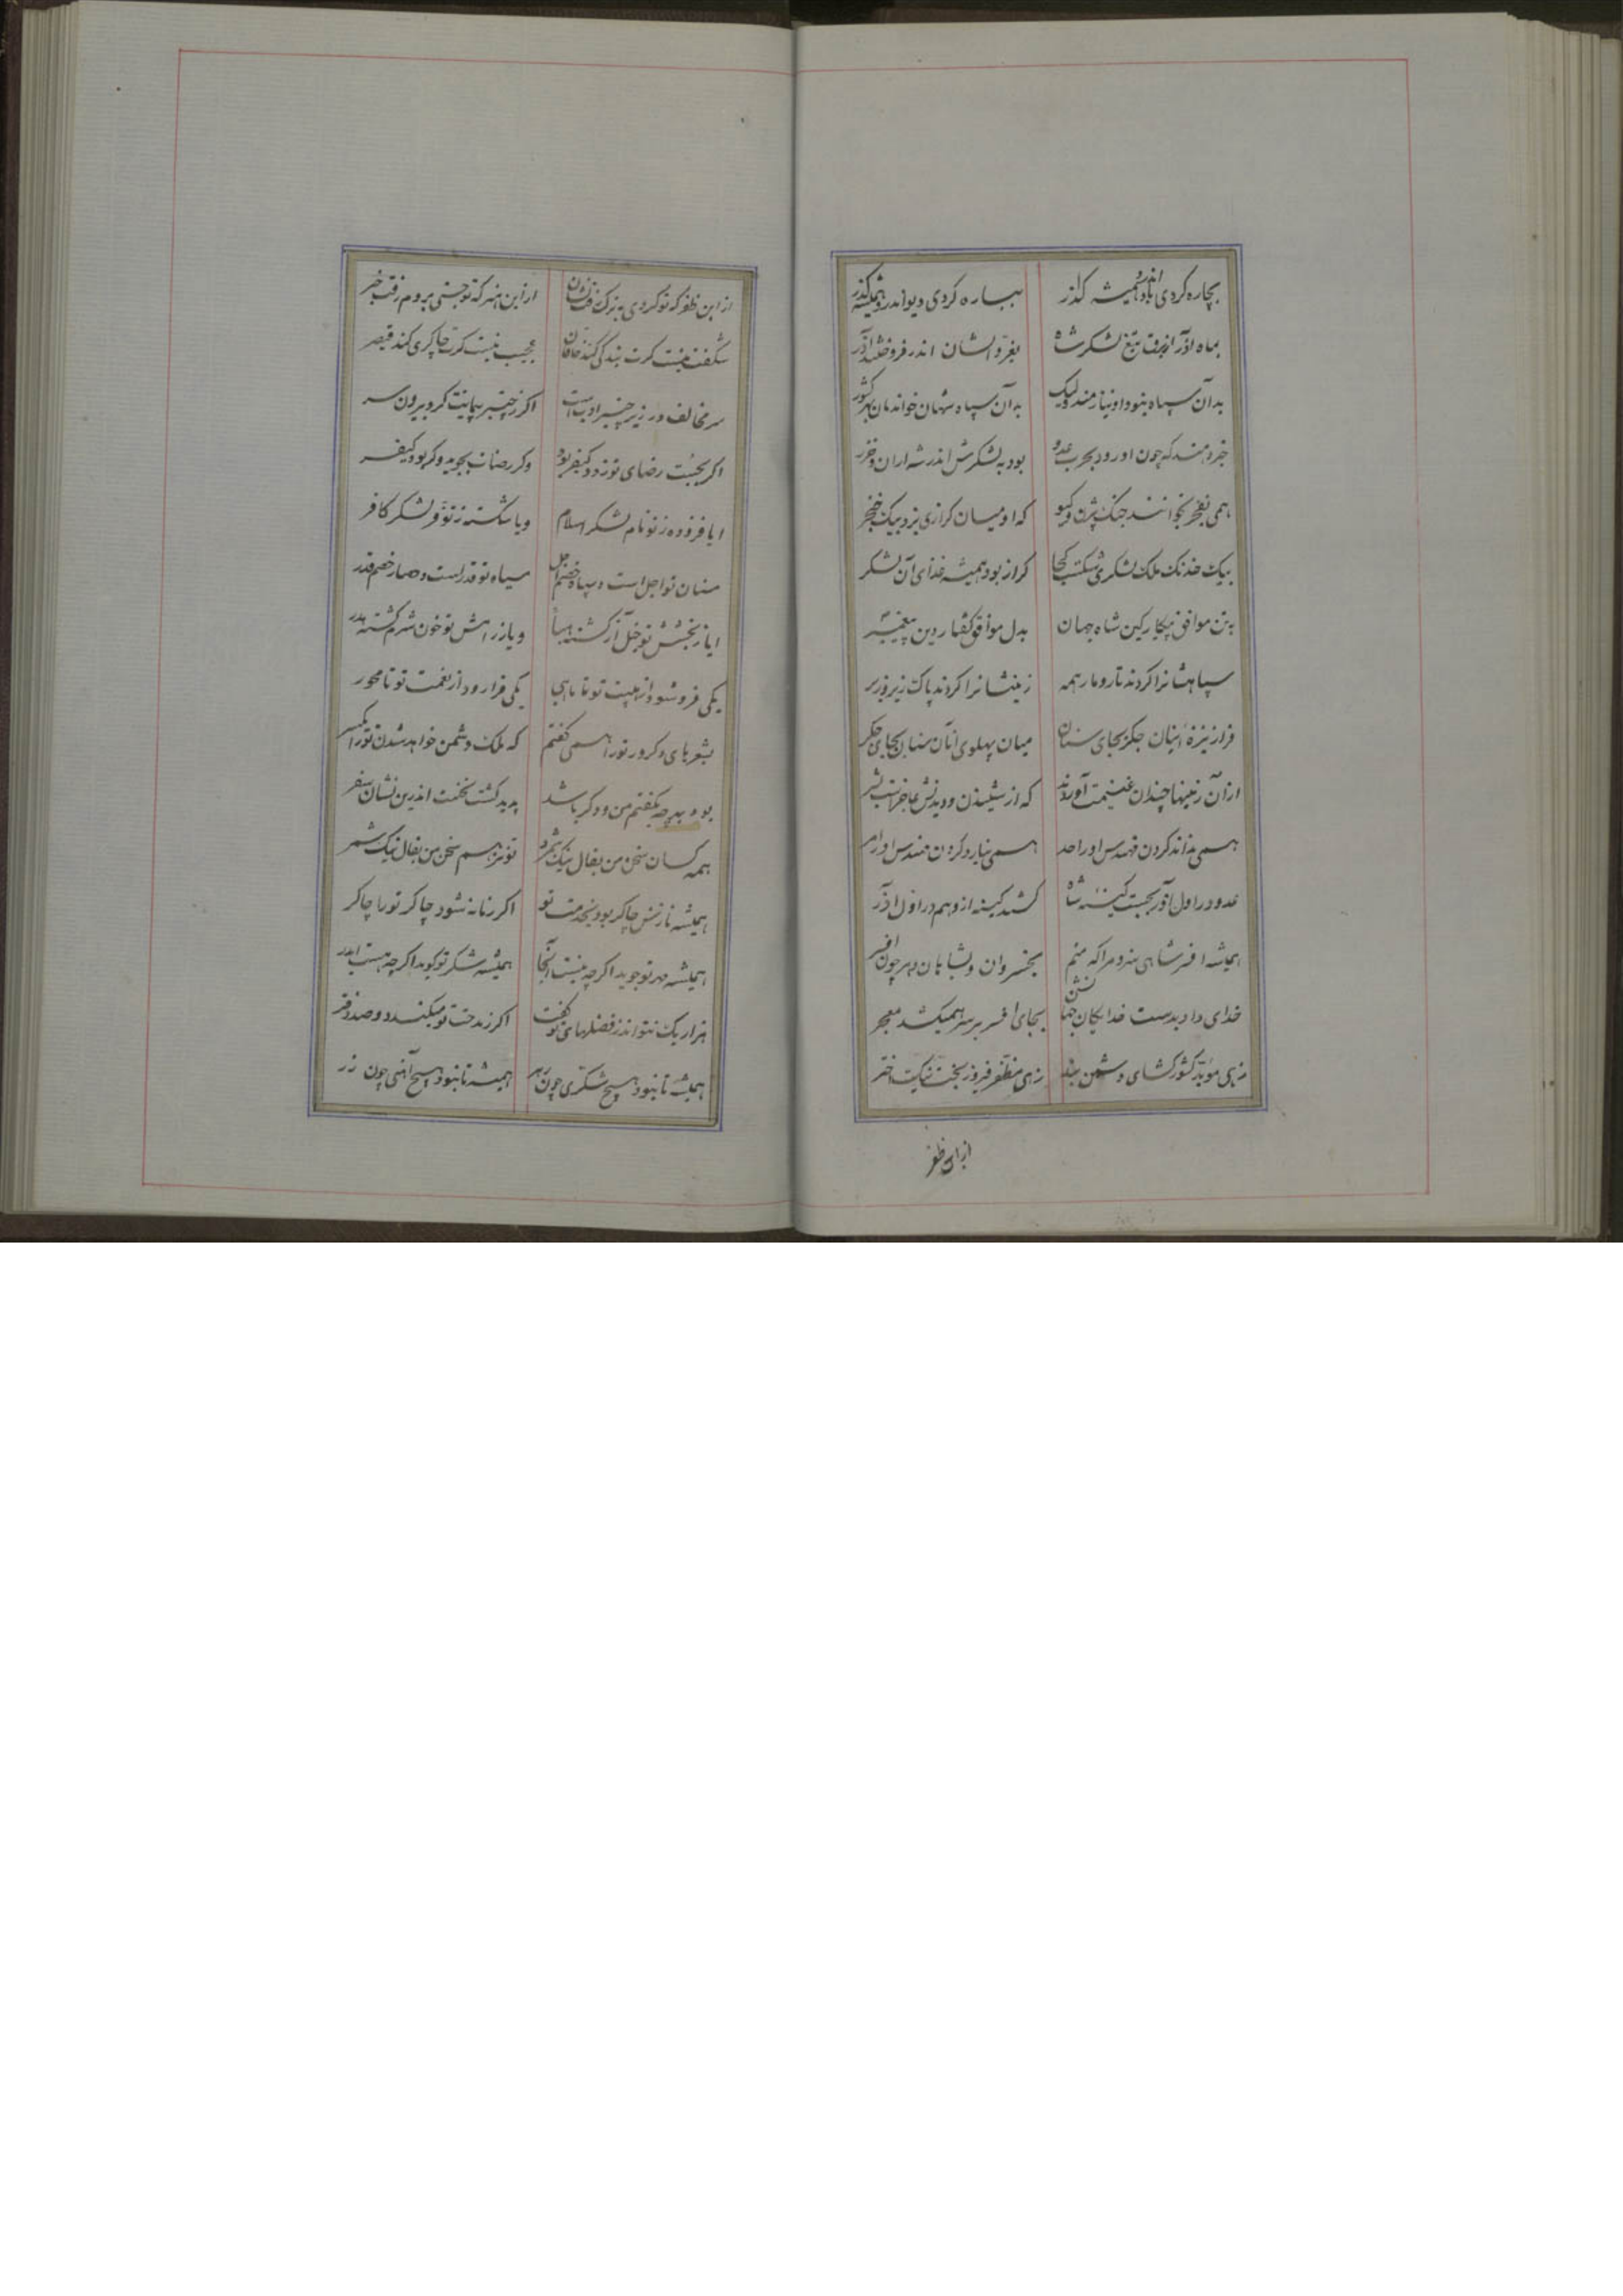 بچاره کردی باد اندرو همیشه گذر بباره کردی دیو اندرو همیشه گذر
بماه آذر از برق تیغ لشکر شاه بغز و الشان اندر فروختند آذر
بدان سپاه نبود او نیازمند ولیک بدان سپاه شهان خواندمان بهر کشور
خردمند که چون او رود بحرب عدو بود به لشکرش اندر شه اران و خزر
همی بفخر بخوانند جنک بیژن و گیو که او میان گرازی بزد بیک خنجر
بیک خدنک ملک لشکری شکست کجا گراز بود همیشه غذای آن لشکر
بتن موافق پیکار کین شاه جهان بدل موافق کفار دین پیغمبر
سپاهشانرا کردند تار و مار همه زمینشانرا کردند پاک زیر و زبر
فراز نیزهٔ اینان جکر بجای سنان میان پهلوی آنان سنان بجای جکر
از آن زمینها چندان غنیمت آوردند که از شنیدن و دیدنش عاجز است بشر
همی نداند کردن مهندس او را حد همی نیارد کردن مهندس او را مر
عدو در اول آذر بجست کینهٔ شاه کشید کینه ازو هم در اول آذر
همیشه افسر شاهی سزد مرا که منم بخسروان و بشاهان دهر چون افسر
خدای داد بدست خدایگان جهانش بجای افسر بر سر همیکشد معجر
زهی مؤید کشورکشای دشمن بند زهی مظفر فیروزبخت نیک اختر
از این ظفر
از این ظفر که تو کردی بترک رفت نشان از این هنر که تو جستی بروم رفت خبر
شکفت نیست کرت بندگی کند خاقان عجیب نیست کرت چاکری کند قیصر
سر مخالف در زیر چنبر ادب است اکر ز چنبر پیمانت کرد بیرون سر
اکر بجست رضای تو زد و کیفر بود وکر رضات بجوید وکر بود کیفر
ایا فزوده ز تو نام لشکر اسلام و یا شکسته ز تو فر لشکر کافر
سنان تو اجل است و سپاه خصم امل سپاه تو قدر است و حصار خصم قدر
ایا ز بخشش تو بخل آز کشته هبا و یا ز رامش تو خون شرم کشته هدر
یکی فرو شود از هیبت تو تا ماهی یکی فرا رود از نعمت تو تا محور
بشعرهای دکر ور تو را همی کفتم که ملک دشمن خواهد شدن تو را یکسر
بود هر چه بکفتم من و دکر باشد پدید کشت نخست اندرین نشان سفر
همه کسان سخن من بفال نیک شمرد تو نیز هم سخن من بفال نیک شمر
همیشه نازش چاکر بود بخدمت تو اکر زمانه شود چاکر تو را چاکر
همیشه مهر تو جوید اکر چه نیست آنجا همیشه شکر تو کوید اکر چه هست ایدر
هزار یک نتواند ز فضلهای تو کفت اکر ز مدحت تو میکند دو صد دفتر
همیشه تا نبود هیچ شکری چون زهر همیشه تا نبود هیچ آهنی چون زر